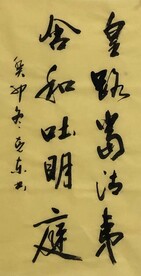 皇路當清夷
含和吐明庭
癸卯冬